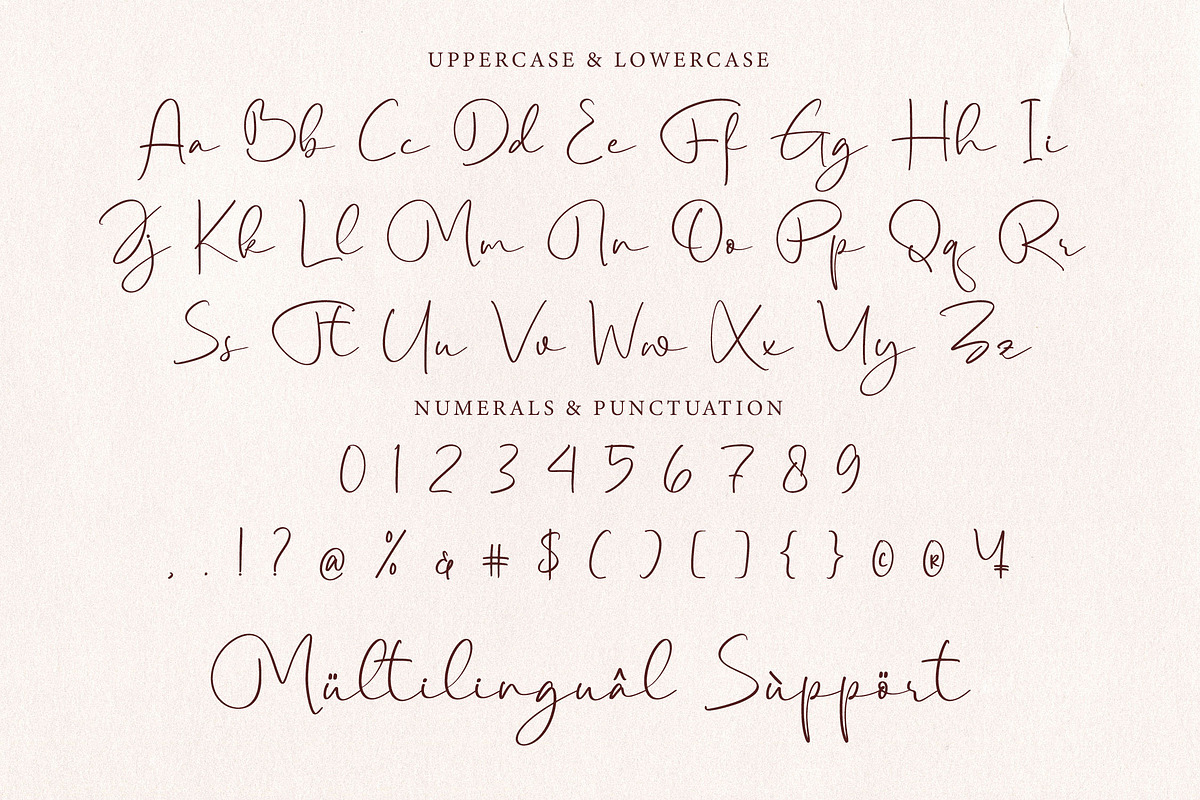 UPPERCASE & LOWERCASE
Aa Bb Cc Dd Ee Ff Gg Hh Ii
Jj Kk Ll Mm Nn Oo Pp Qq Rr
Ss Tt Uu Vv Ww Xx Yy Zz
NUMERALS & PUNCTUATION
0 1 2 3 4 5 6 7 8 9
, . ! ? @ % & # $ ( ) [ ] { } © ® ¥
Mültilinguâl Sùppört